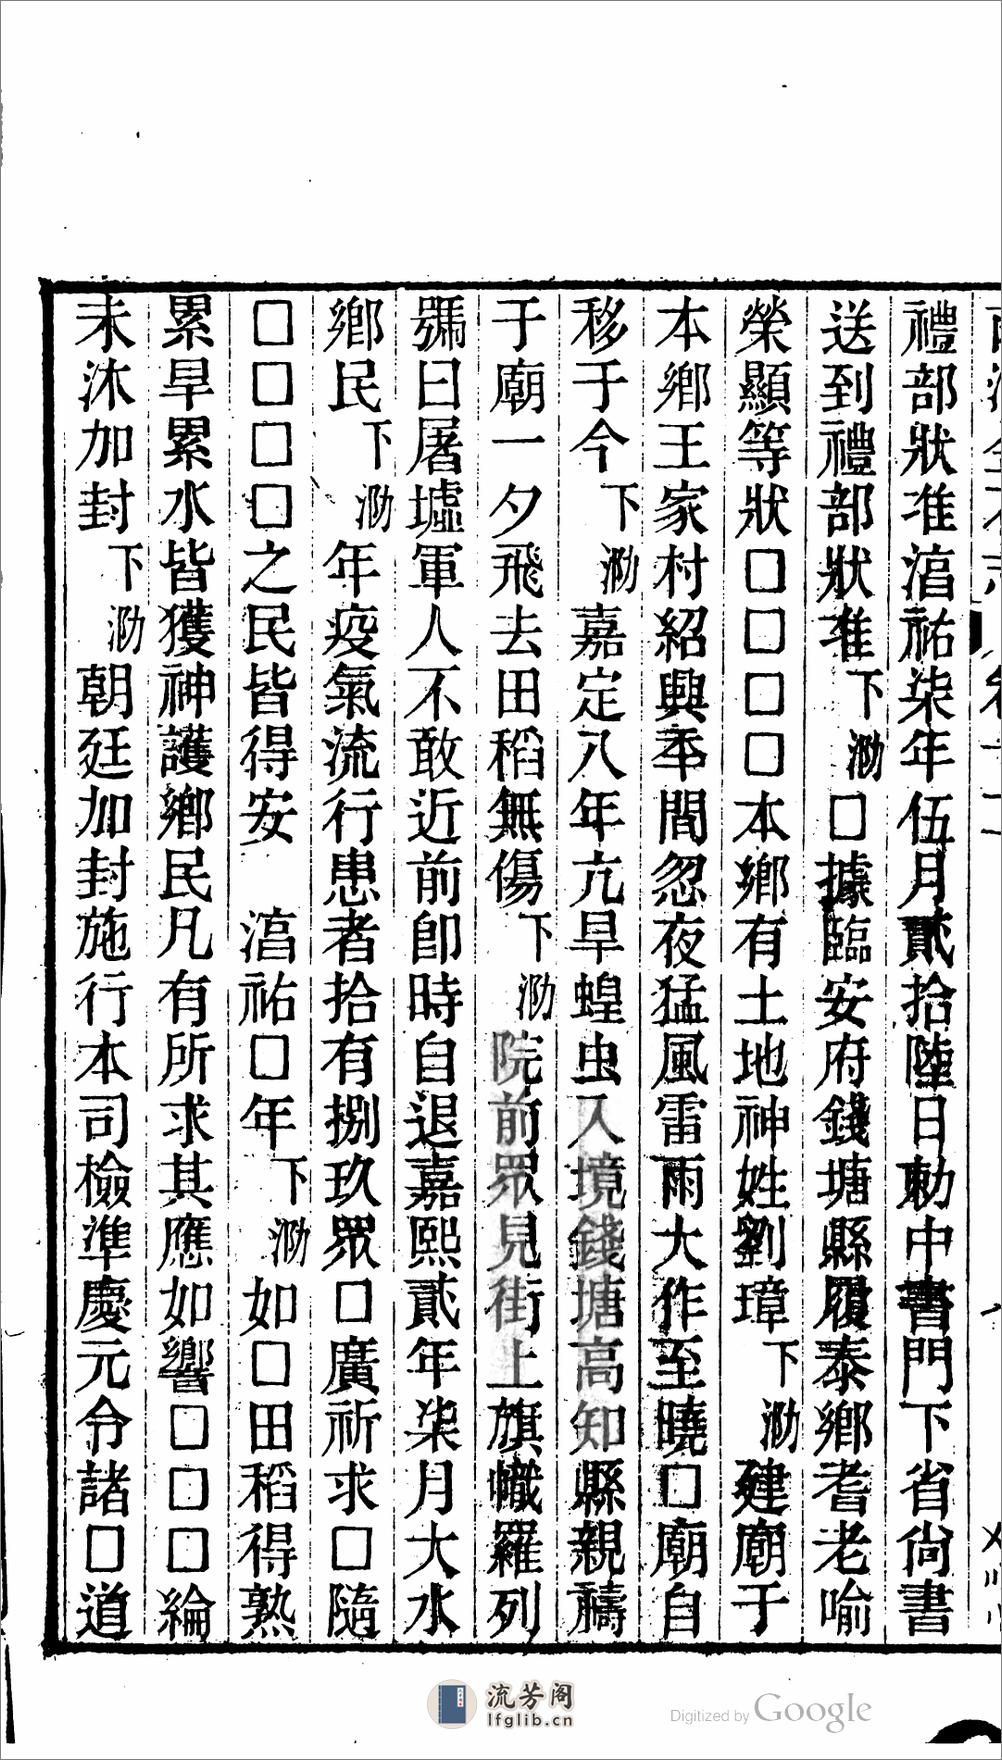 禮部狀准淳祐柒年伍月貳拾陸日勅中書門下省尙書
送到禮部狀准下泐□據臨安府錢塘縣履泰鄉耆老喻
榮顯等狀□□□□本鄉有土地神姓劉璋下泐建廟于
本鄉王家村紹興年間忽夜猛風雷雨大作至曉□廟自
移于今下泐嘉定八年亢旱蝗虫入境錢塘高知縣親禱
于廟一夕飛去田稻無傷下泐院前眾見街上旗幟羅列
號曰屠墟軍人不敢近前卽時自退嘉熙貳年柒月大水
鄉民下泐年疫氣流行患者拾有捌玖眾□廣祈求□隨
□□□□之民皆得安 淳祐□年下泐如□田稻得熟
累旱累水皆獲神護鄉民凡有所求其應如響□□□綸
未沐加封下泐朝廷加封施行本司檢準慶元令諸□道
流芳阁
lfglib.cn
Digitized by Google